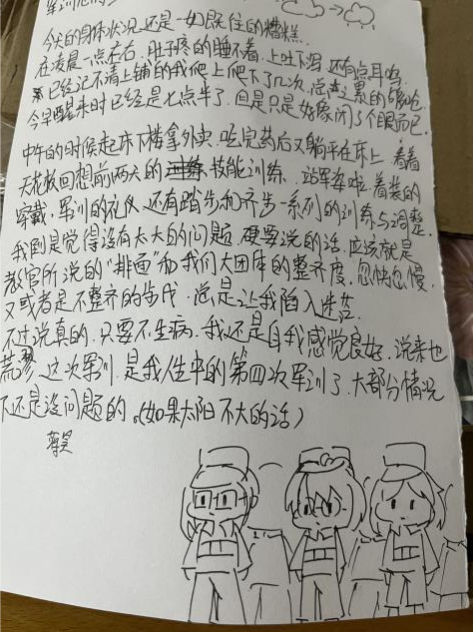 今天的身体状况还是一如既往的糟糕.
在凌晨一点左右,肚子疼的睡不着,上吐下泻,还有点耳鸣
已经记不清上铺的我爬上爬下了几次,总之累的够呛
今早醒来时已经是七点半了,但是只是好像闭了个眼而已.
中午的时候起床下楼拿外卖,吃完药后又躺平在床上,看着
天花板回想前两天的技能训练,站军姿啦,着装的
穿戴,军训的礼仪,还有踏步和齐步一系列的训练与调整.
我倒是觉得没有太大的问题,硬要说的话,应该就是
教官所说的“排面”和我们大团体的整齐度,忽快忽慢,
又或者是不整齐的步伐,总是让我陷入迷茫
不过说真的,只要不生病,我还是自我感觉良好,说来也
荒谬,这次军训,是我人生中的第四次军训了,大部分情况
下还是没问题的。(如果太阳不大的话)